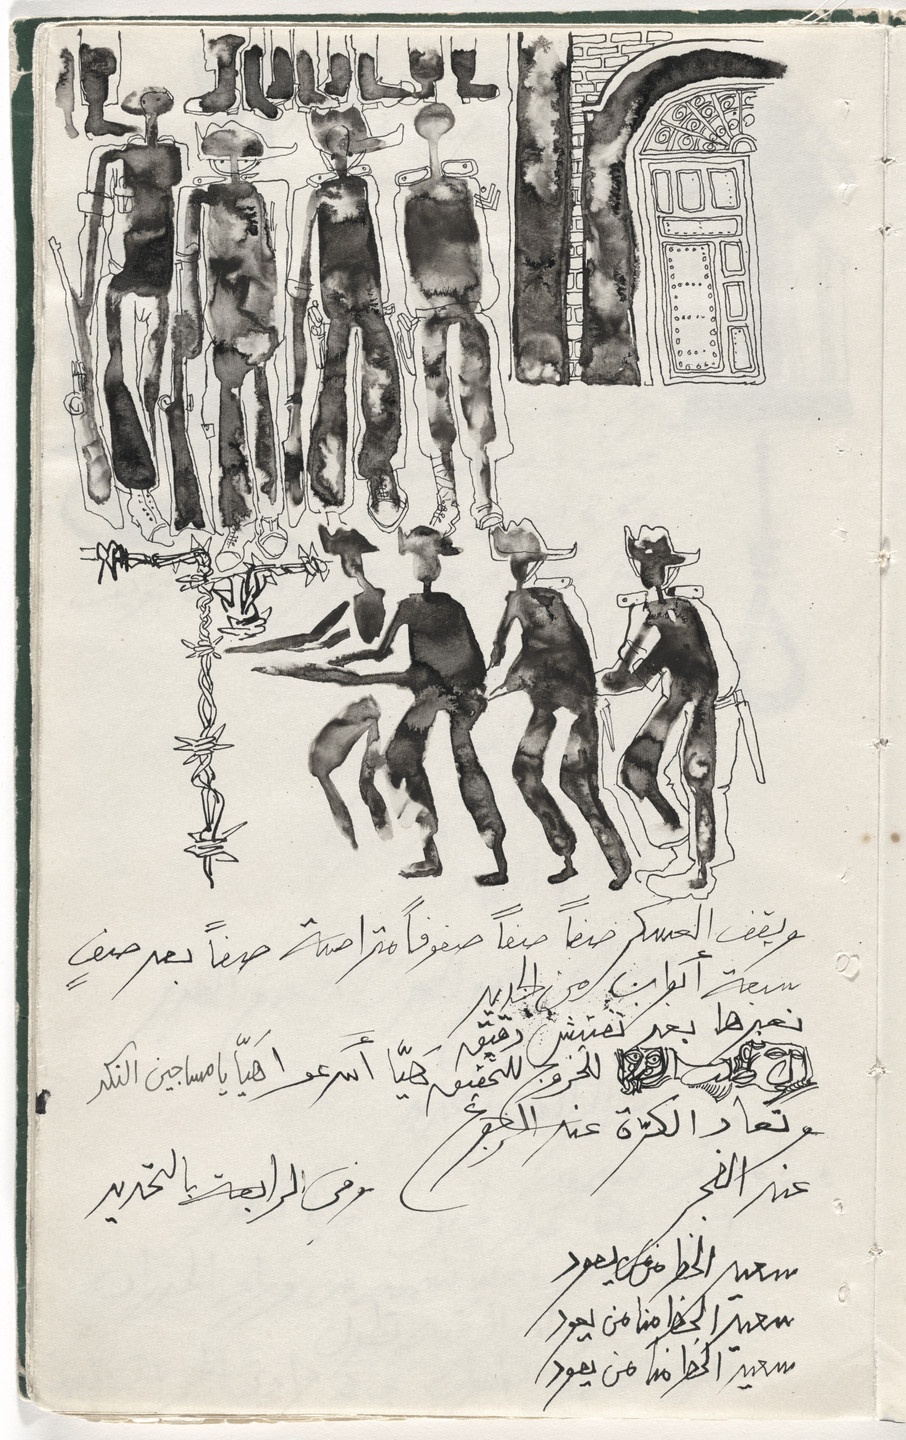 ويقف العسكر صفاً صفاً صفوفاً متراصة صفاً بعد صفٍ
سبعة أبواب من الحديد
نعبرها بعد تفتيش دقيق
للخروج للتحقيق هَيّا أسرعوا هَيّا يا مساجين النكد
وتعاد الكرّة عند الرجوع
عند الفجر
وفى الرابعة بالتحديد
سعيد الحظ من يعود
سعيد الحظ منا من يعود
سعيد الحظ مناً من يعود